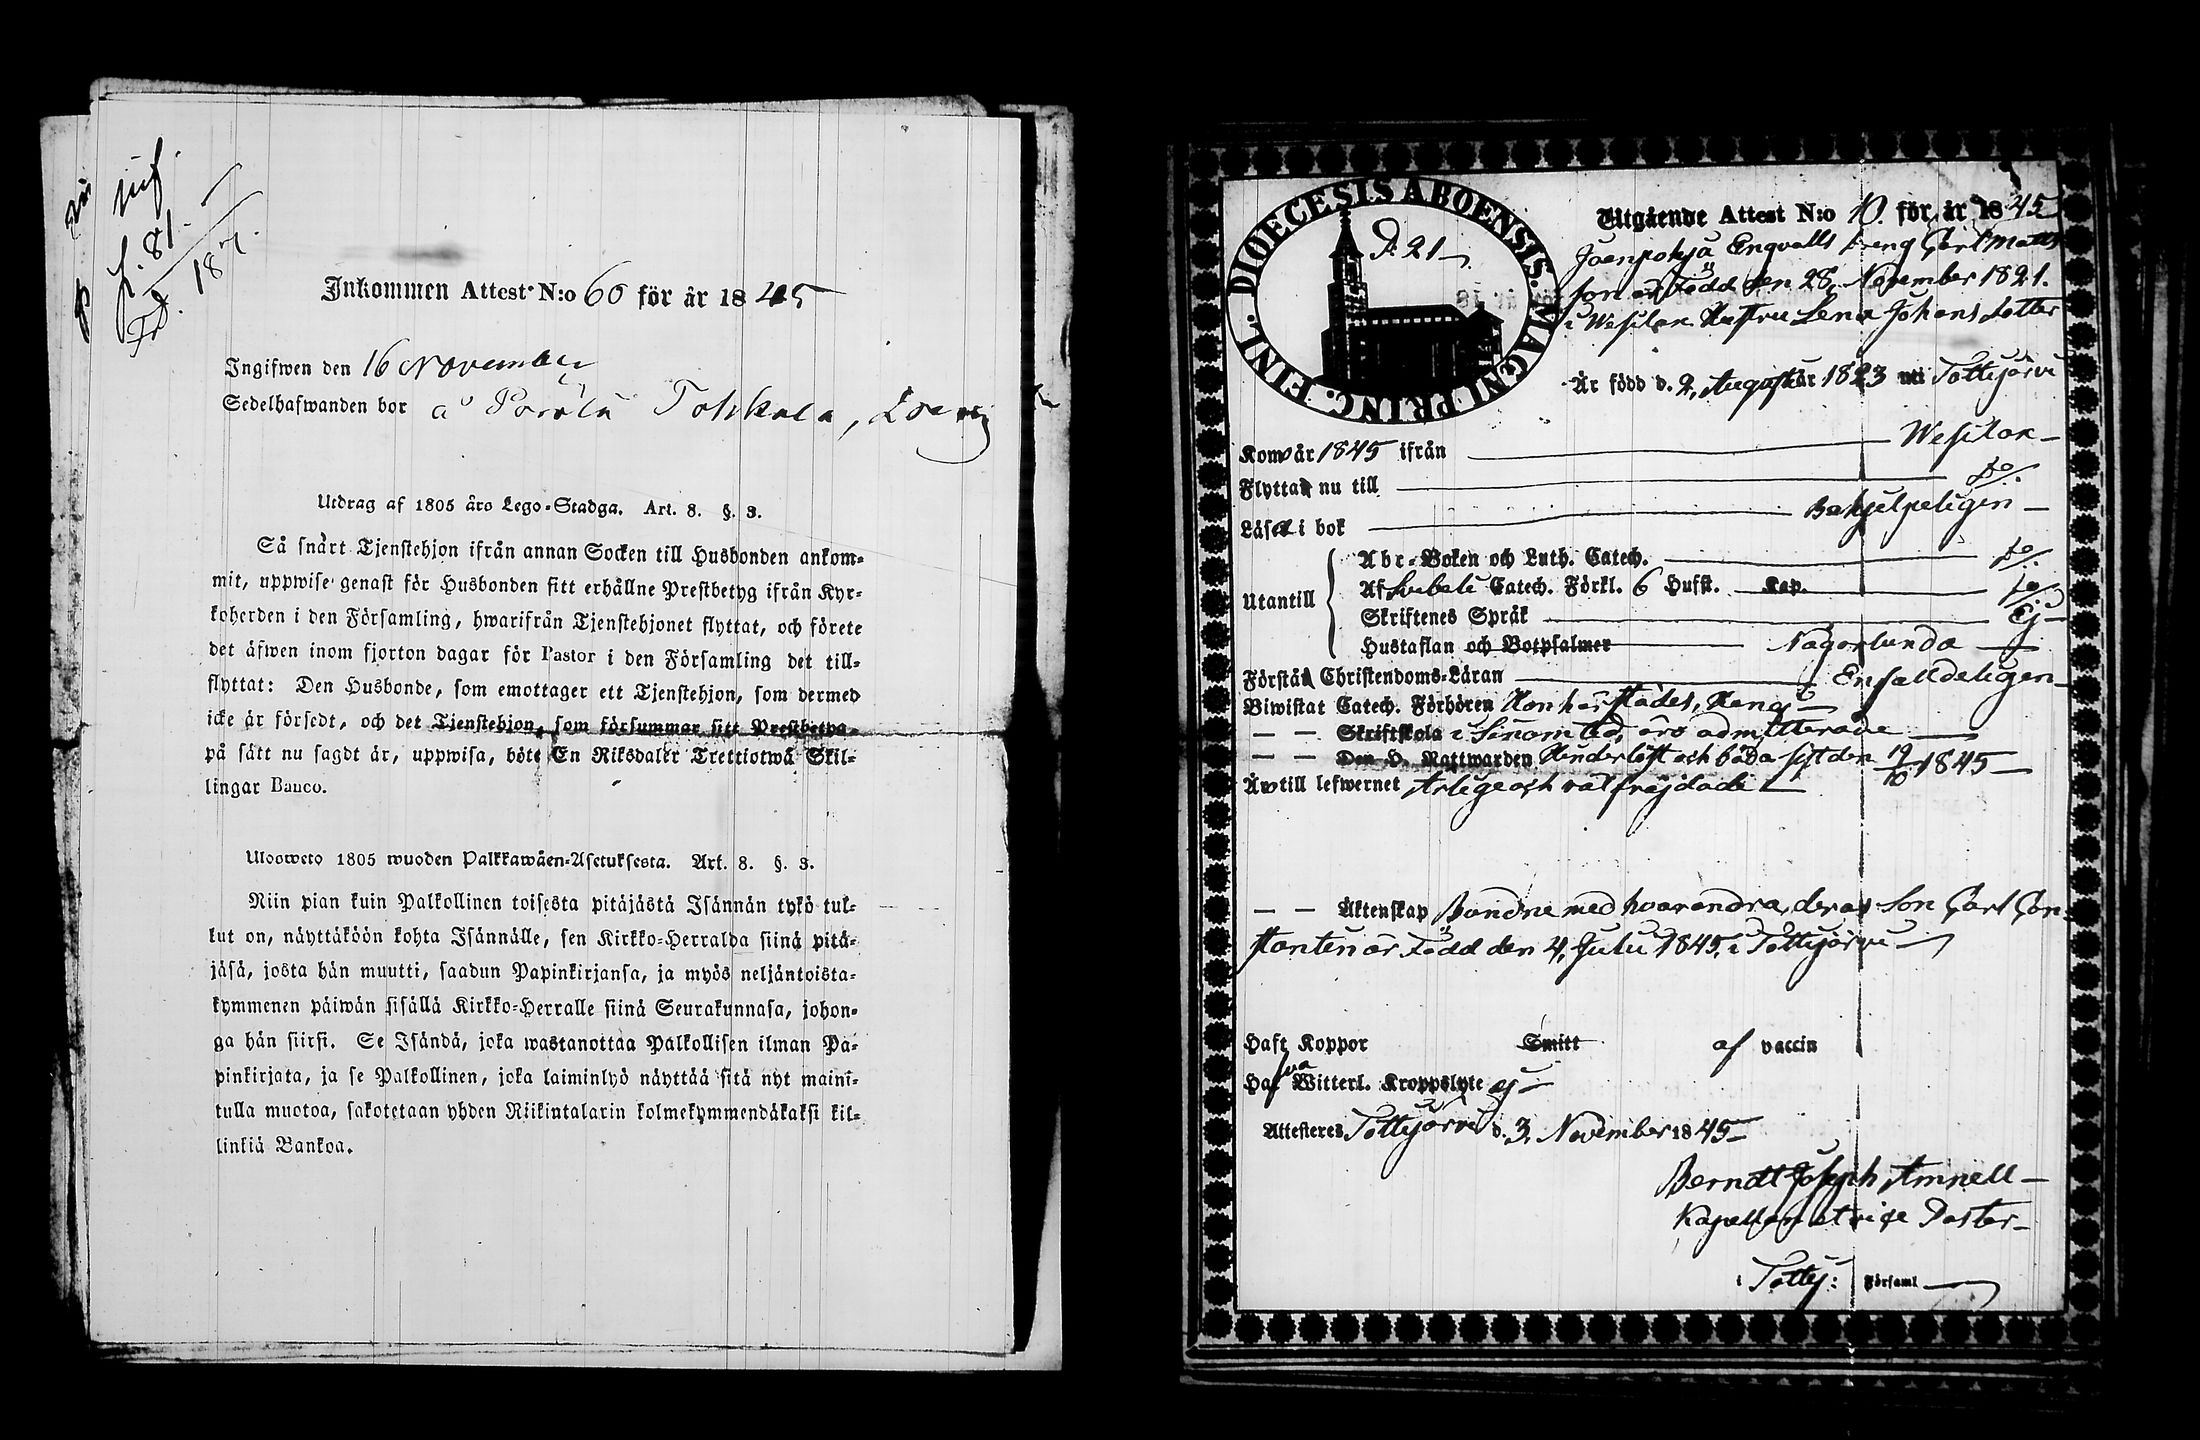 f. 81.
Inkommen Attest N:o 60 för år 1845
Ingifwen den 16 November
Sedelhafwanden bor å Tokkala,
Utdrag af 1805 års Lego-Stadga. Art. 8. §. 3.
Så snart Tjenstehjon ifrån annan Socken till Husbonden ankom-
mit, uppwise genast för Husbonden sitt erhållne Prestbetyg ifrån Kyr-
koherden i den Församling, hwarifrån Tjenstehjonet flyttat, och förete
det äfwen inom fjorton dagar för Pastor i den Församling det till-
flyttat: Den Husbonde, som emottager ett Tjenstehjon, som dermed
icke är försedt, och det Tjenstehjon, som försummar sitt Prestbetyg
på sätt nu sagdt är, uppwisa, böte En Riksdaler Trettiotwå Skil-
lingar Banco.
Ulosweto 1805 wuoden Palkkawäen-Asetuksesta. Art. 8. §. 3.
Niin pian kuin Palkollinen toisesta pitäjästä Isännän tykö tul-
lut on, näyttäköön kohta Isännälle, sen Kirkko-Herralda siinä pitä-
jäsä, josta hän muutti, saadun Papinkirjansa, ja myös neljäntoista-
kymmenen päiwän sisällä Kirkko-Herralle siinä Seurakunnasa, johon-
ga hän siirsi. Se Isändä, joka wastanottaa Palkollisen ilman Pa-
pinkirjata, ja se Palkollinen, joka laiminlyö näyttää sitä nyt maini-
tulla muotoa, sakotetaan yhden Riikintalarin kolmekymmendäkaksi kil-
linkiä Bankoa.
DIOECESIS ABOENSIS. MAGNI PRINC. FINL.
P. 21
Utgående Attest N:o 10. för år 1845
Joenpohja Engvalls dreng Carl Matts
son är Född den 28, November 1821.
i Wesilax Hustru Lena Johans dotter
Är född d. 2, Augusti år 1823 uti Tottijärvi
Kom år 1845 ifrån Wesilax
Flytta nu till do
Läsa i bok Behjelpeligen
Utantill
Abc-Boken och Luth. Catech. do
Af Svebeli Catech. Förkl. 6 Hufst. Kap. do
Skriftenes Språk Ej
Hustaflan och Botpsalmer Någorlunda
Förstå Christendoms-Läran Enfalldeligen
Biwistat Catech. Förhören Hon härstädes, Han ej
— — Skriftskola i sinom tid, äro admitterade
— — Den H. Nattwarden Hinderlöst och båda sist den 19/10 1845
Äro till lefwernet Ärlige och välfräjdade
— — Äktenskap Bundne med hvarandra, deras Son Carl Con-
stantin är Född den 4, Julii 1845, i Tottijärvi
Haft Koppor Smitt af vaccin
Hafva Witterl. Kroppslyte ej
Attesteres Tottijärvi d. 3, November 1845
Berndt Joseph Aminell
Kapellan et vice Pastor
i Tottij: Församl